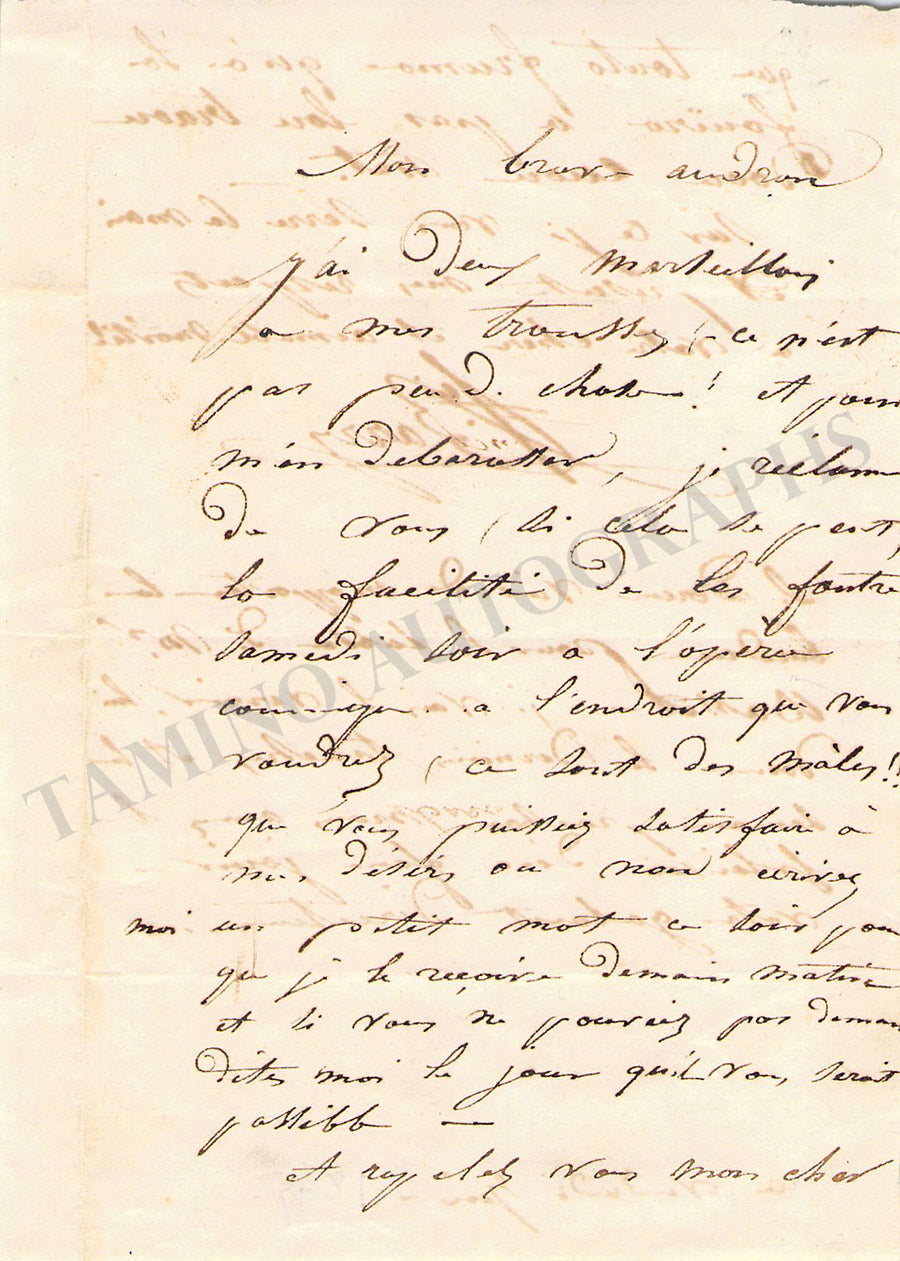 Mon brave audran
j'ai deux marseillois
a mes trousses (ce n'est
pas peu d. chose! et pour
m'en debarasser, je réclame
de vous (si cela se peut,
la facilité de les foutre
samedi soir a l'opèra
comique. a l'endroit que vous
voudrez (ce sont des mâles!!
que vous puissiez satisfaire à
mes désirs ou non écrivez
moi un petit mot ce soir pour
que je le reçoive demain matin
et si vous ne pouviez pas demain
dites moi le jour qu'il vous serait
possible —
et rapelez vous mon cher
TAMINO AUTOGRAPHS